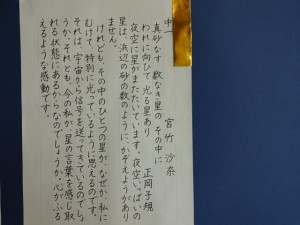 中一　宮竹　沙奈
真砂なす　数なき星の　その中に
われに向ひて　光る星あり
正岡子規
夜空に星がまたたいています。夜空いっぱいの
星は、浜辺の砂の数のように、かぞえようがあり
ません。
けれども、その中のひとつの星が、なぜか、私に
むけて、特別に光っているように思えるのです。
それは、宇宙から信号を送ってきているのでしょ
うか、それとも、今の私が、星の言葉を感じ取
れる状態にあるからなのでしょうか。心がふる
えるような感動です。